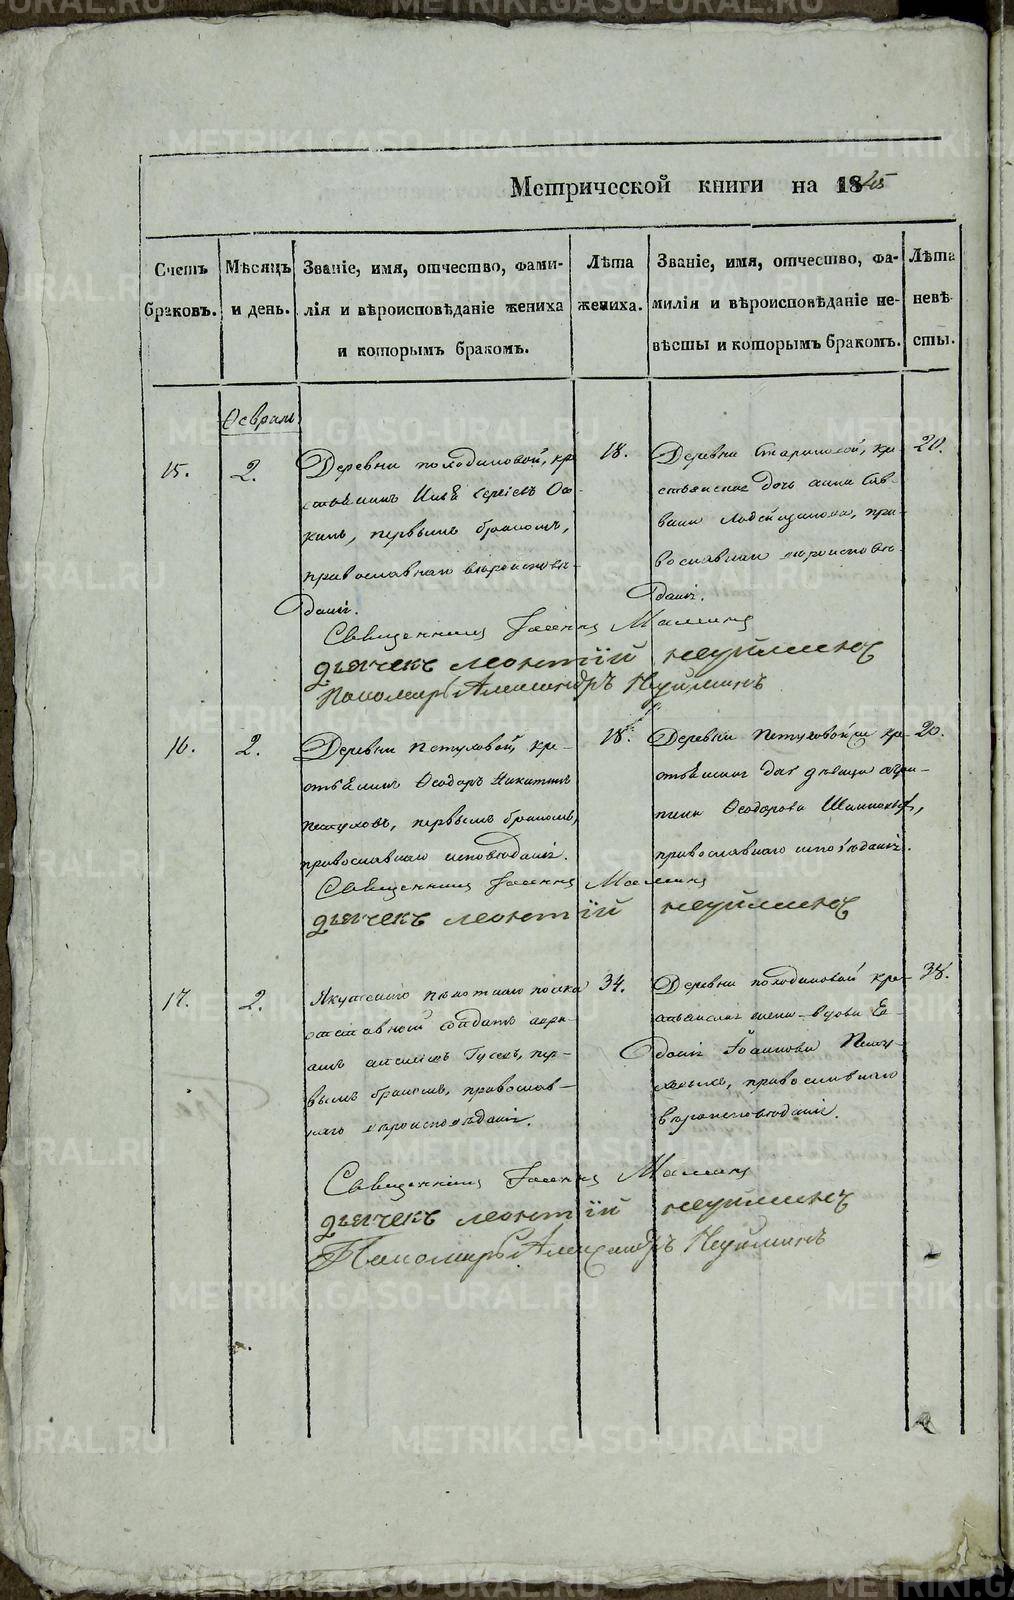 Метрической книги на 1845
Счетъ браковъ.
Мѣсяцъ и день.
Званіе, имя, отчество, фами-
лія и вѣроисповѣданіе жениха
и которымъ бракомъ.
Лѣта жениха.
Званіе, имя, отчество, фа-
милія и вѣроисповѣданіе не-
вѣсты и которымъ бракомъ.
Лѣта невѣ-
сты.
Февраль
15.
2.
Деревни Колодиловой, кре
стьянинъ Сергіевъ
кинъ, первымъ бракомъ,
православнаго вѣроисповѣ-
данія.
18.
Деревни кре-
стьянская дочь Анна Сав-
вина пра-
вославнаго вѣроисповѣ-
данія.
20.
Священникъ Іоаннъ Маминъ
дьячекъ леонтїй неуйминъ
Пономарь Александръ Неуйминъ
16.
2.
Деревни Петуховой кре-
стьянинъ Ѳеодоръ Никитинъ
Петуховъ, первымъ бракомъ,
православнаго исповѣданія.
18.
Деревни Петуховой кре-
стьянская дѣвица Агри-
пина Ѳеодорова
православнаго исповѣданія.
20.
Священникъ Іоаннъ Маминъ
дьячекъ леонтїй неуйминъ
17.
2.
Якутскаго пѣхотнаго полка
отставной солдатъ
Алексѣевъ Гусевъ, пер-
вымъ бракомъ, православ-
наго вѣроисповѣданія.
34.
Деревни Колодиловой кре-
стьянская жена вдова Ев-
докія Іоаннова Пету-
хова, православнаго
вѣроисповѣданія.
38.
Священникъ Іоаннъ Маминъ
дьячекъ леонтїй неуйминъ
Пономарь Александръ Неуйминъ
METRIKI.GASO-URAL.RU